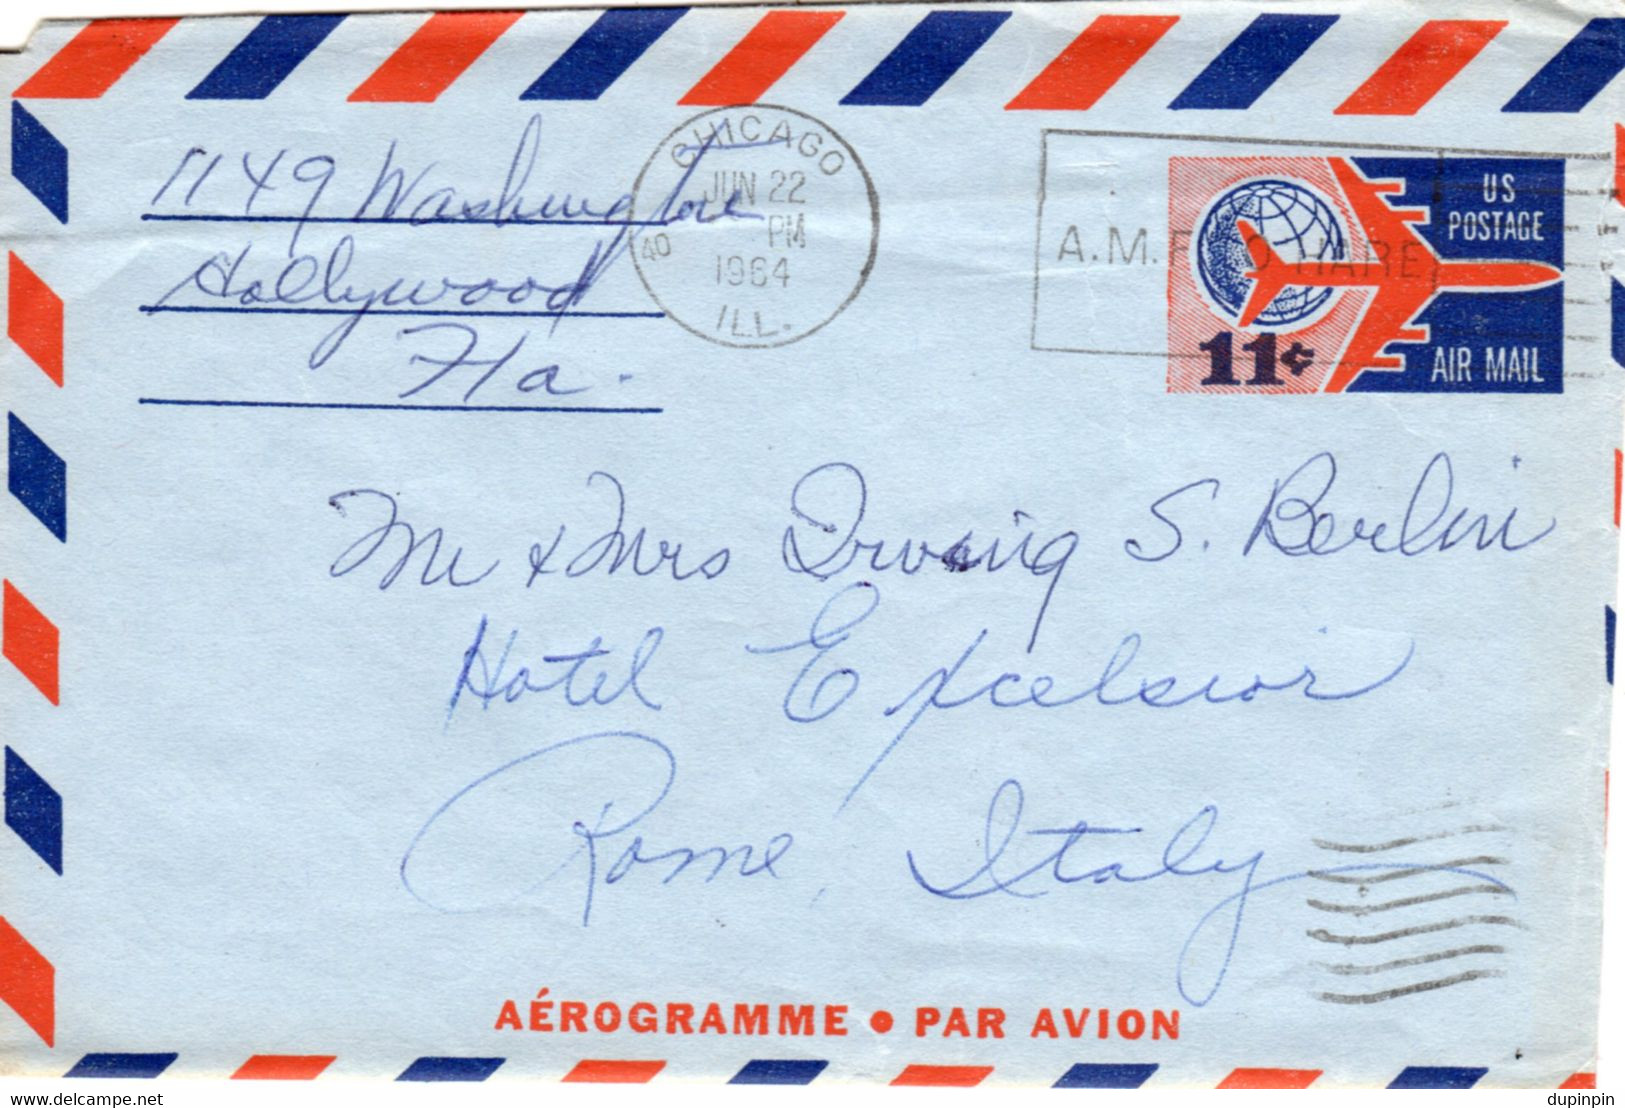 1149 Washington
Hollywood
Fla.
CHICAGO
JUN 22
PM
40
1964
ILL.
A.M.F. O'HARE
US
POSTAGE
11¢
AIR MAIL
Mr & Mrs Irving S. Berlin
Hotel Excelsior
Rome, Italy
AÉROGRAMME • PAR AVION
www.delcampe.net
dupinpin